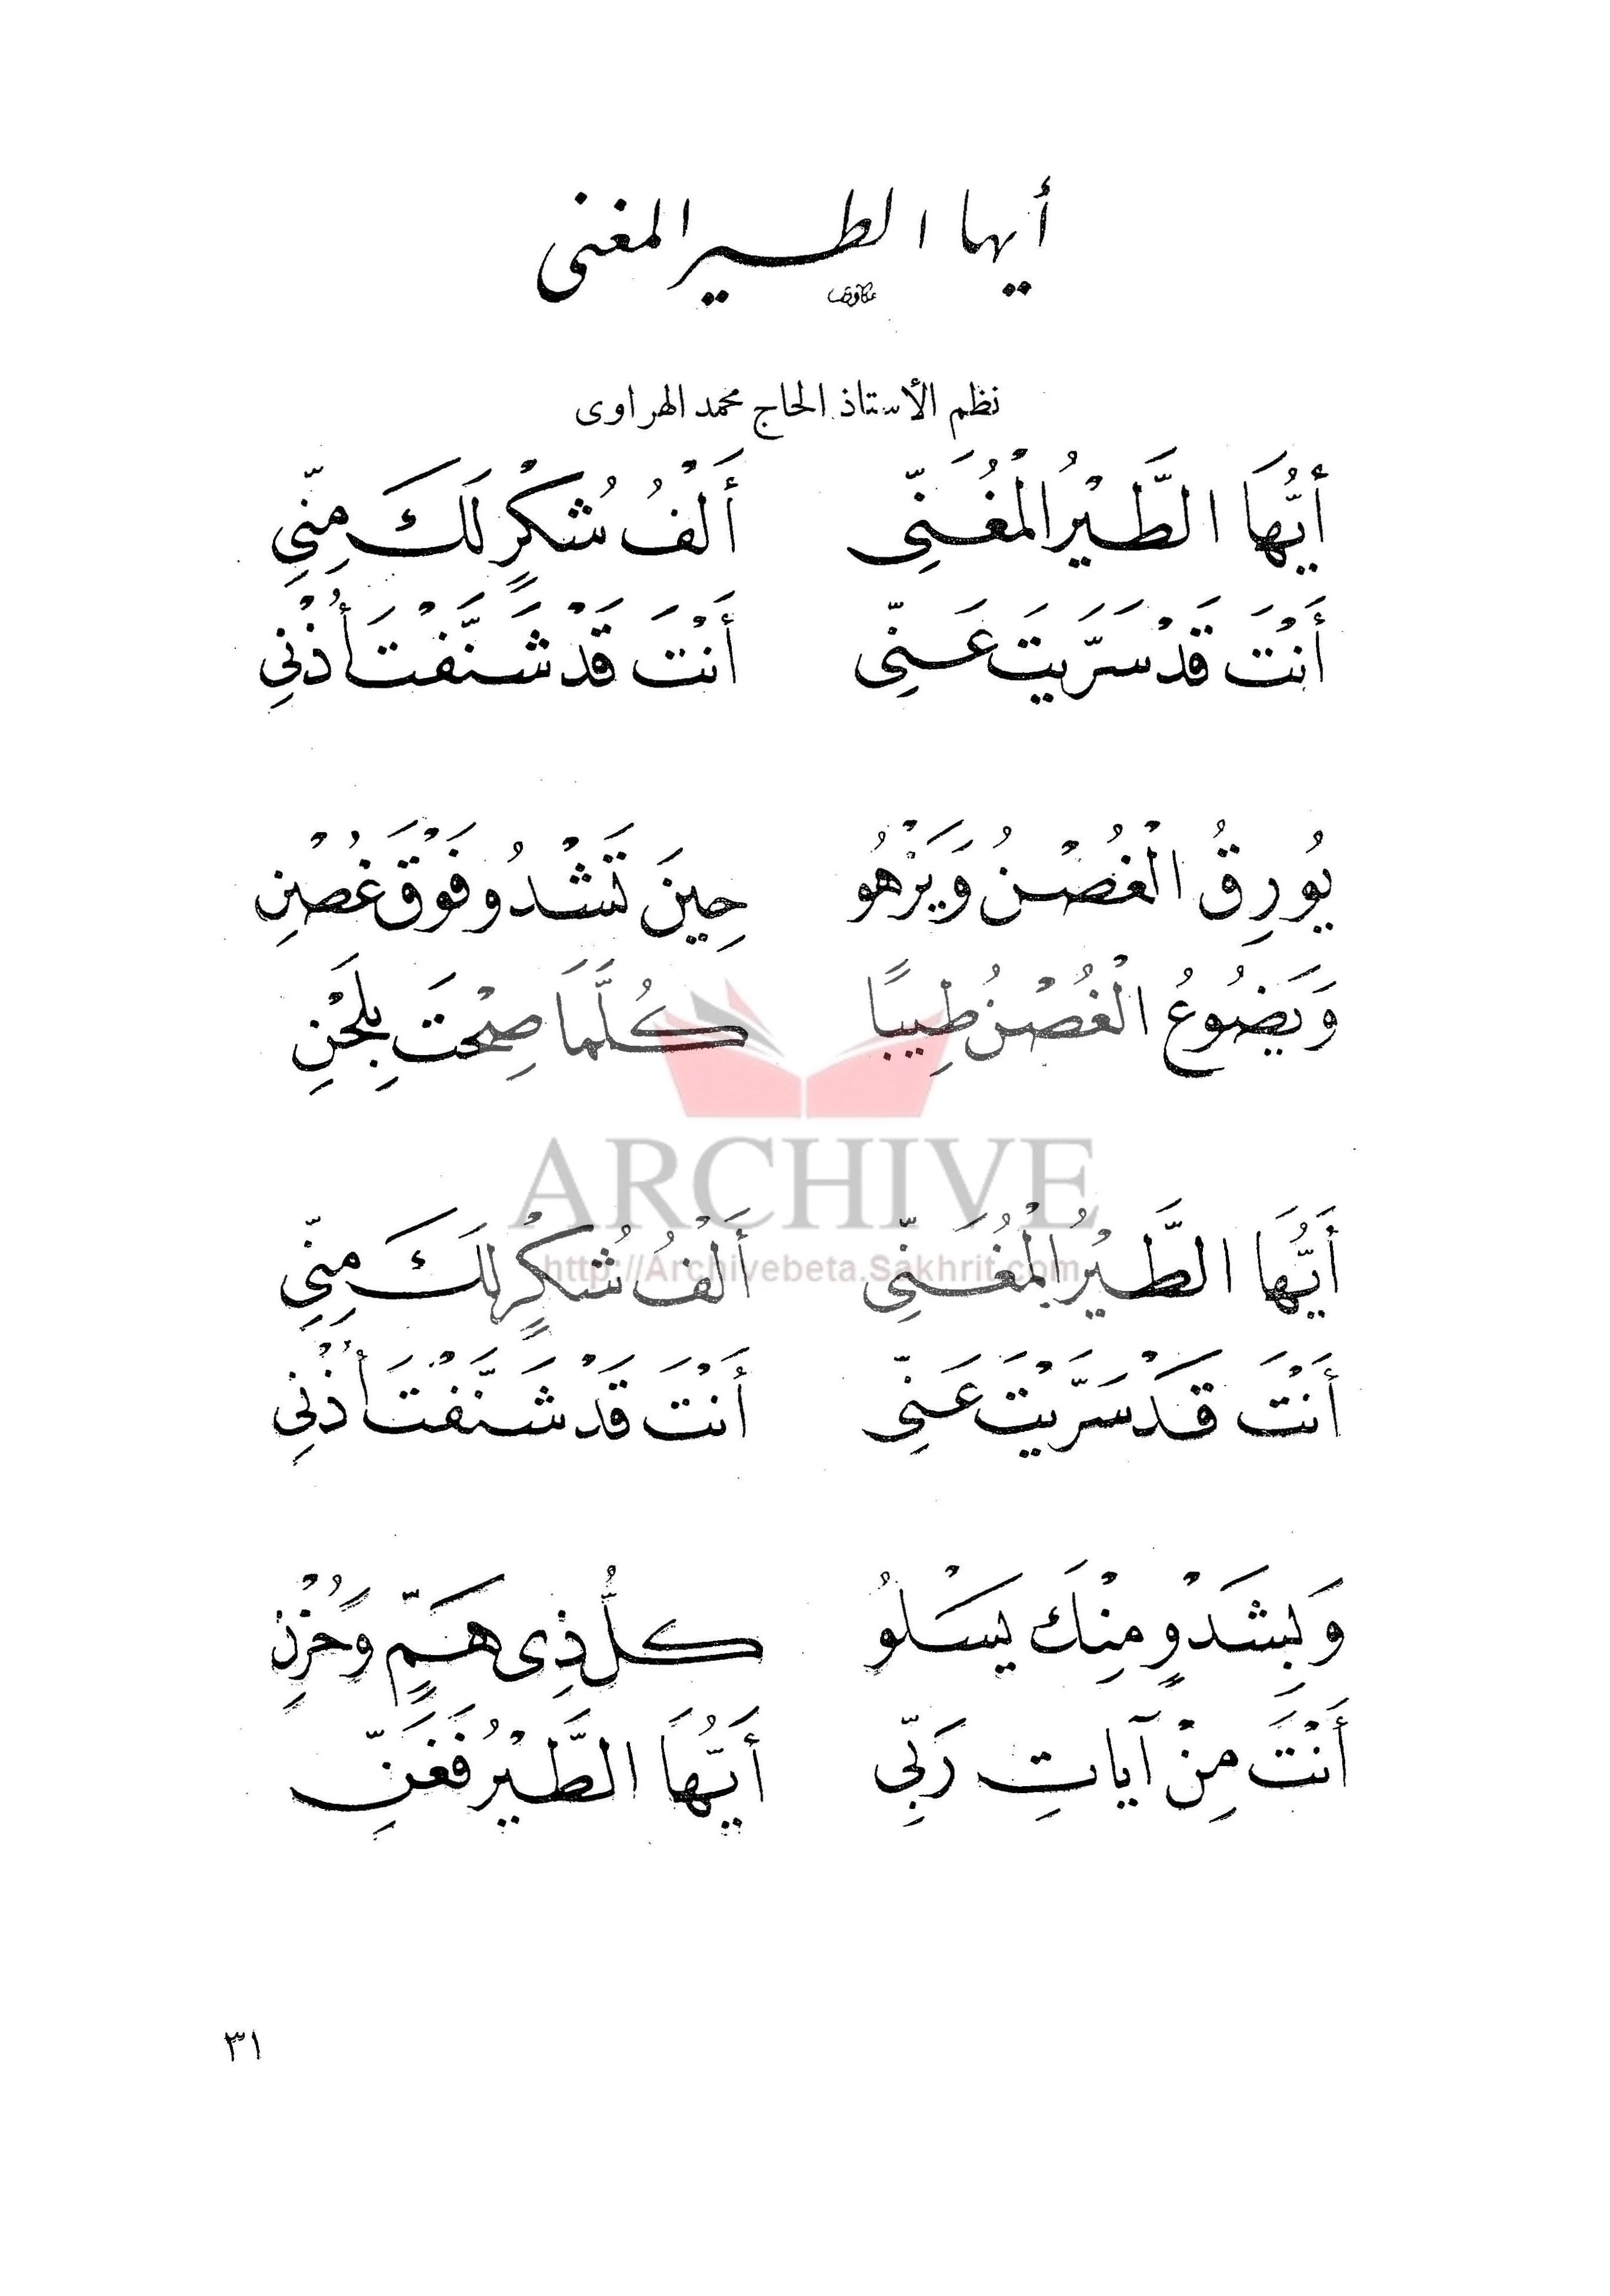 أيها الطير المغنى
نظم الأستاذ الحاج محمد الهراوى
أَيُّهَا الطَّيْرُ الْمُغَنِّى أَلْفُ شُكْرٍ لَكَ مِنِّي
أَنْتَ قَدْ سَرَّيتَ عَنِّى أَنْتَ قَدْ شَنَّفْتَ أُذْنِي
يُورِقُ الْغُصْنُ وَيَزْهُو حِينَ تَشْدُو فَوْقَ غُصْنِ
وَيَضُوعُ الْغُصْنُ طِيبًا كُلَّمَا صِحْتَ بِلَحْنِ
ARCHIVE
http://Archivebeta.Sakhrit.com
أَيُّهَا الطَّيْرُ الْمُغَنِّى أَلْفُ شُكْرٍ لَكَ مِنِّي
أَنْتَ قَدْ سَرَّيْتَ عَنِّى أَنْتَ قَدْ شَنَّفْتَ أُذْنِي
وَبِشَدْوٍ مِنْكَ يَسْلُو كلُّ ذِى هَمٍّ وَحُزْنٍ
أَنْتَ مِنْ آيَاتِ رَبِّى أَيُّهَا الطَّيْرُ فَغَنِّ
٣١